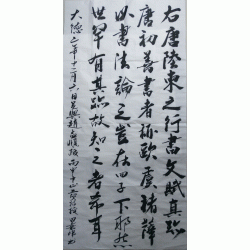 右唐陸柬之行書文賦真跡
唐初善書者稱歐虞褚薛
以書法論之豈在四子下耶然
世罕有其跡故知之者希耳
大德二年十二月六日吳興趙孟頫跋 丙申